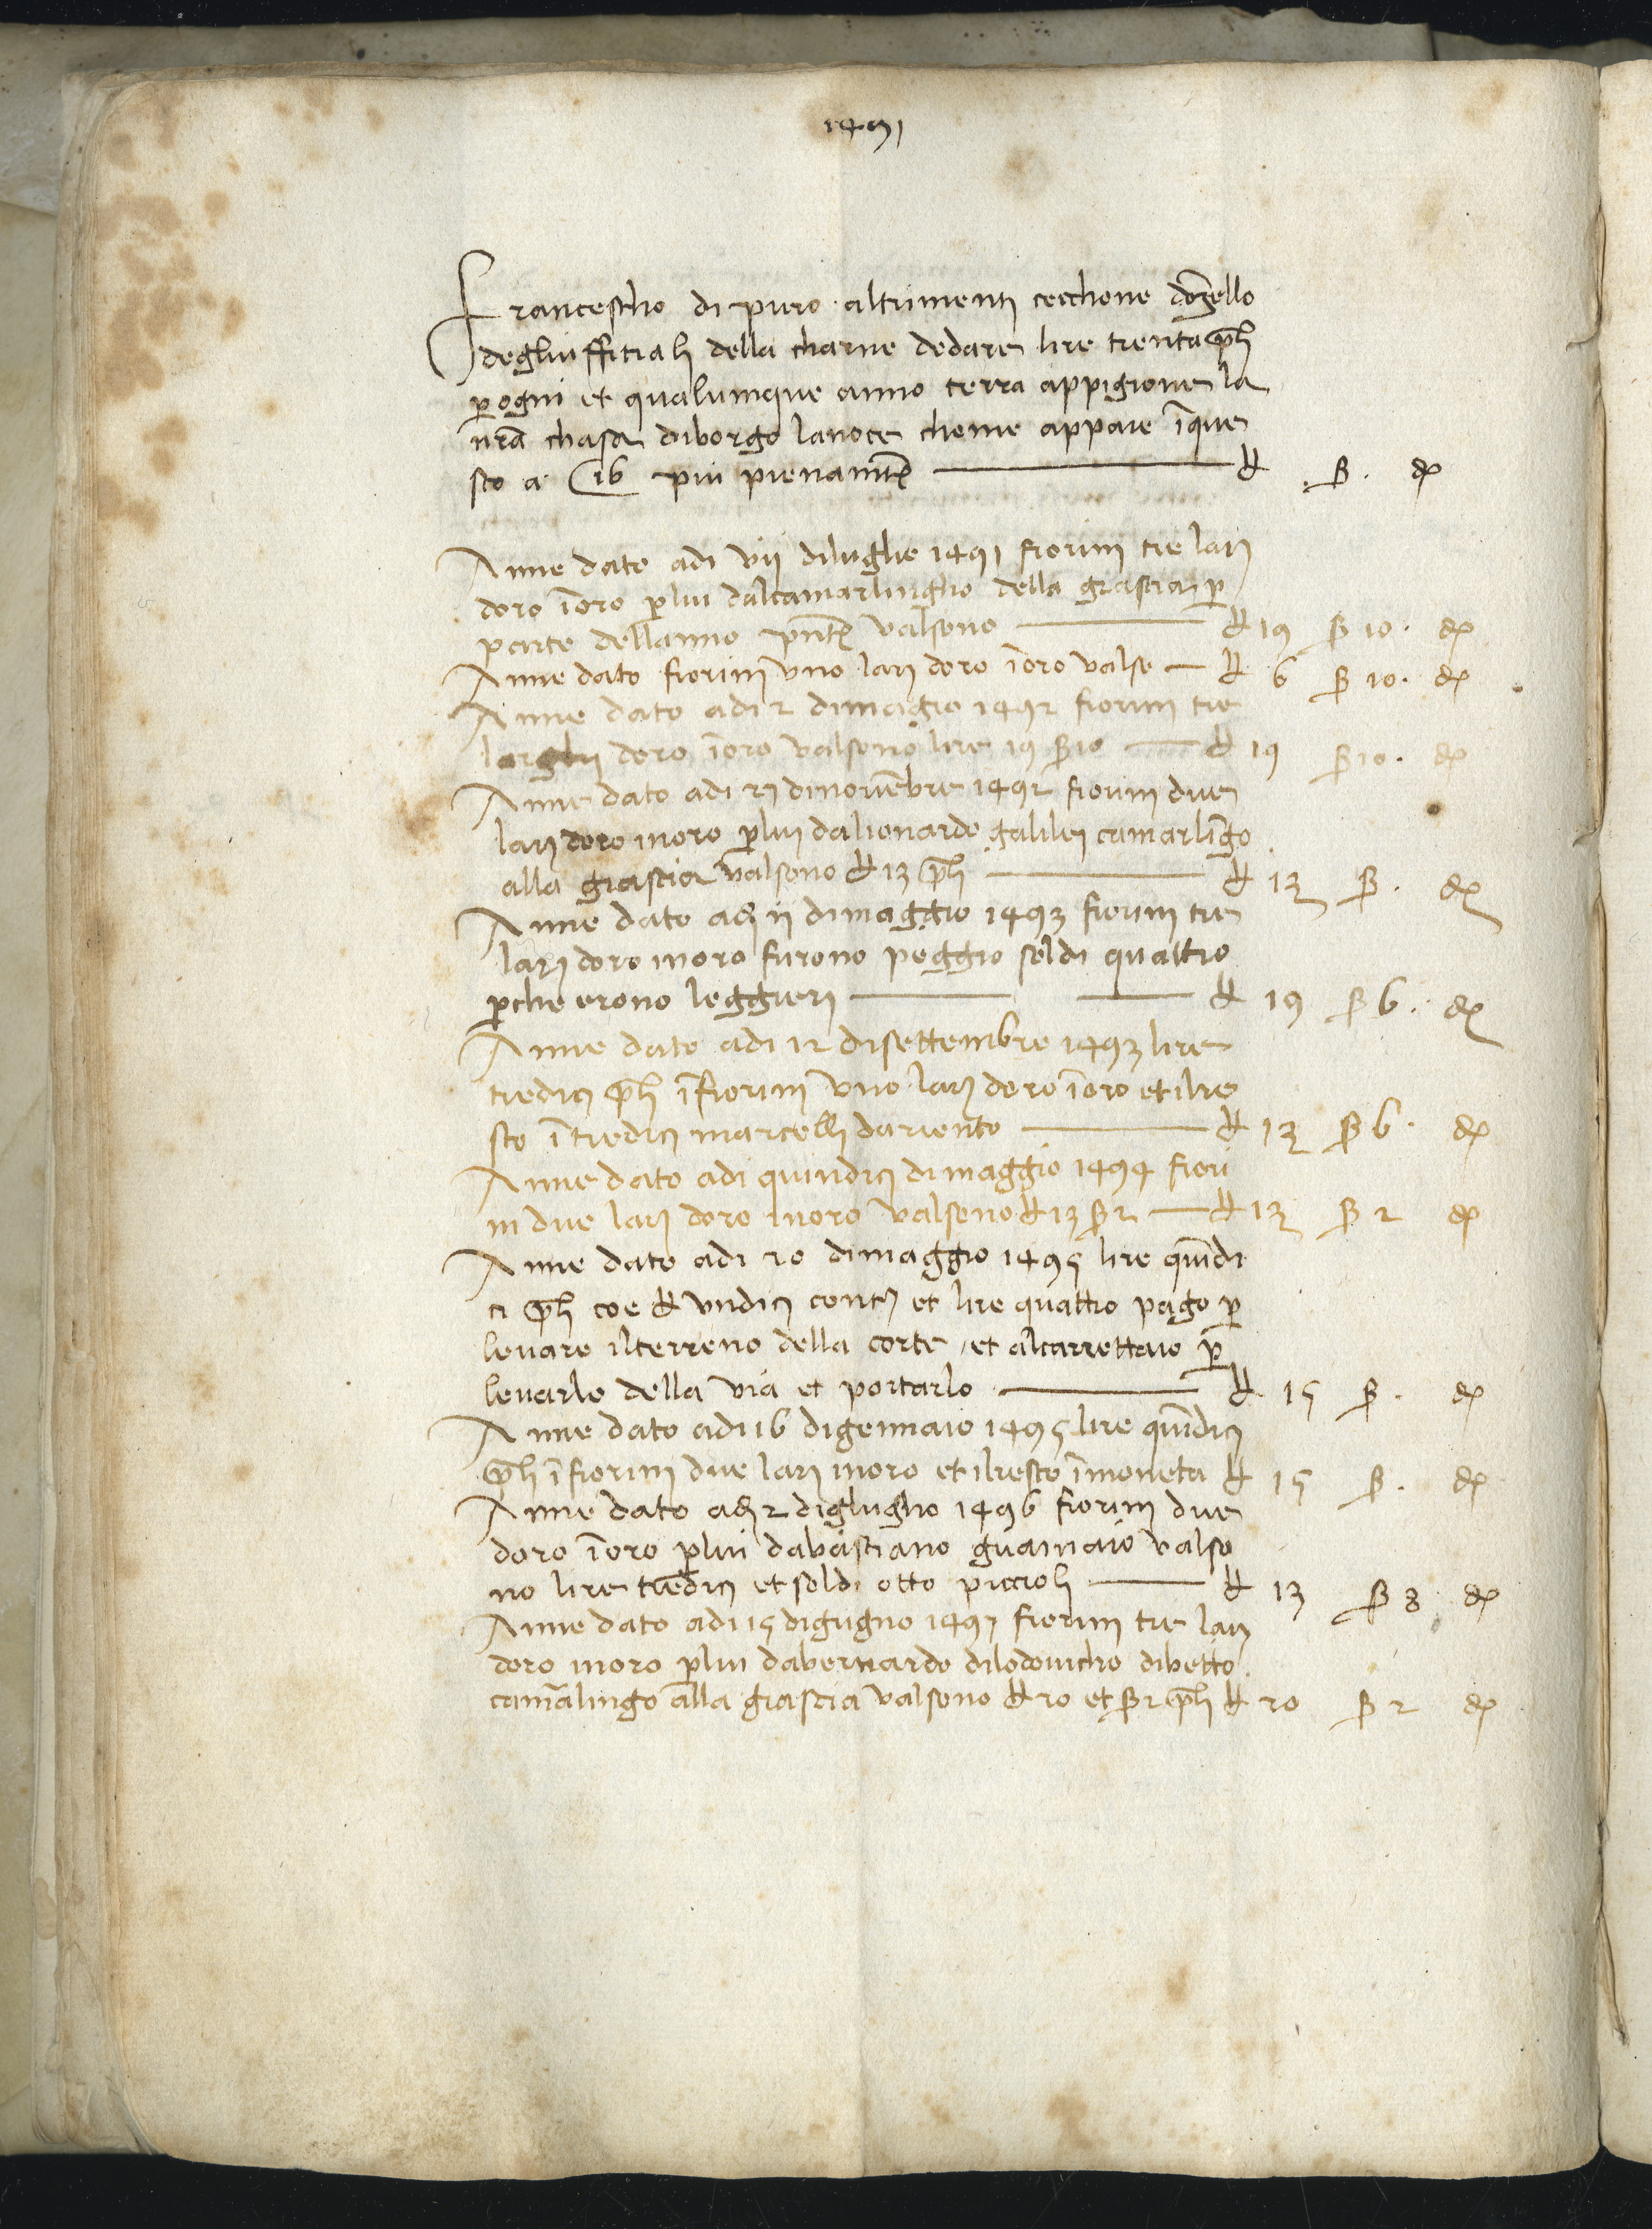 1491
Francescho di piero altrimenti cecchone donzello
degliuffitiali della charne dedare lire trenta pli
p ogni et qualumque anno terra appigione la
nra chasa diborgo lanoce chome appare ique
sto a c 16 piu pienamte ₶ ß δ
Anne dato adi vij diluglio 1491 fiorini tre lari
doro ioro plui dalcamarlingho della grascia p
parte dellanno pnte valsono ₶ 19 ß 10 δ
Anne dato fiorini uno lari doro ioro valse ₶ 6 ß 10 δ
Anne dato adi 2 dimagio 1492 fiorini tre
larghi doro ioro valsono lire 19 ß 10 ₶ 19 ß 10 δ
Anne dato adi 27 dinovebre 1492 fiorini due
lari doro inoro plui dalionardo galilei camarligo
alla grascia valsono ₶ 13 pli ₶ 13 ß δ
Anne dato adi ij dimaggio 1493 fiorini tre
lari doro inoro furono peggio soldi quattro
pche erono leggieri ₶ 19 ß 6 δ
Anne dato adi 12 disettembre 1493 lire
tredici pli i fiorini uno lari doro ioro et ilre
sto i tredici marcelli dariento ₶ 13 ß 6 δ
Anne dato adi quindici dimaggio 1494 fiori
ni due lari doro inoro valsono ₶ 13 ß 2 ₶ 13 ß 2 δ
Anne dato adi 20 dimaggio 1495 lire quidi
ci pli coe ₶ undici conti et lire quattro pago p
levare ilterreno della corte et alcarrettaio p
levarlo della via et portarlo ₶ 15 ß δ
Anne dato adi 16 digennaio 1495 lire quidici
pli i fiorini due lari inoro et ilresto imoneta ₶ 15 ß δ
Anne dato adi 2 digluglio 1496 fiorini due
doro ioro plui dabastiano guainaio valso
no lire tredici et soldi otto piccioli ₶ 13 ß 8 δ
Anne dato adi 15 digugno 1497 fiorini tre lari
doro inoro plui dabernardo dilodovicho dibetto
camalingo alla grascia valsono ₶ 20 et ß 2 pli ₶ 20 ß 2 δ